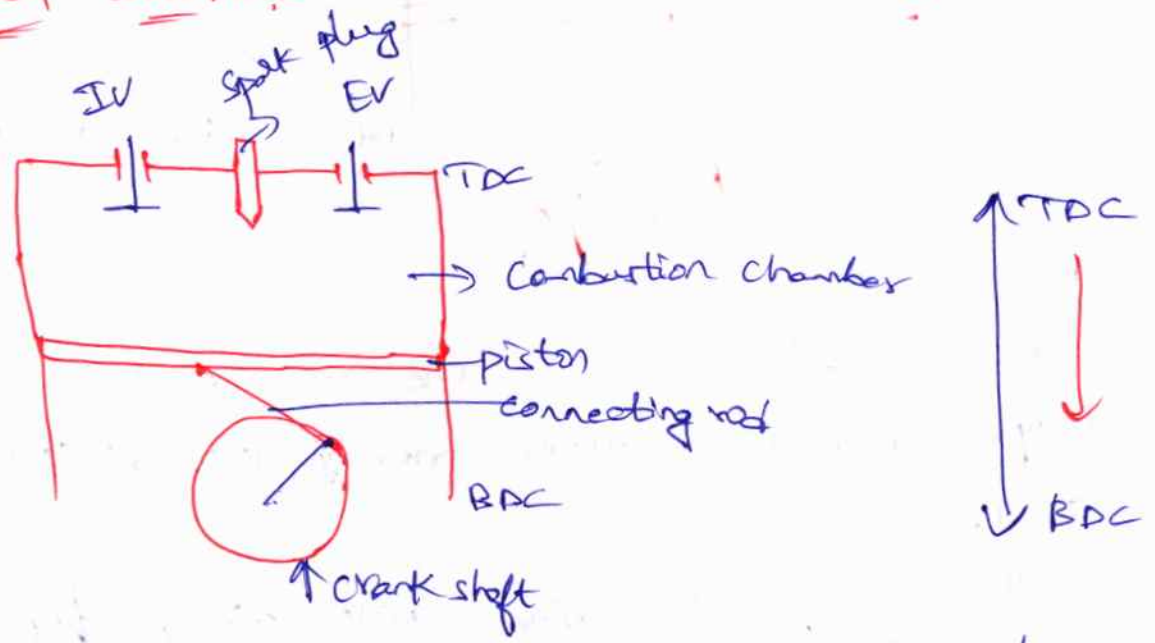 IV
Spark plug
EV
TDC
Combustion chamber
piston
connecting rod
BDC
crank shaft
TDC
BDC